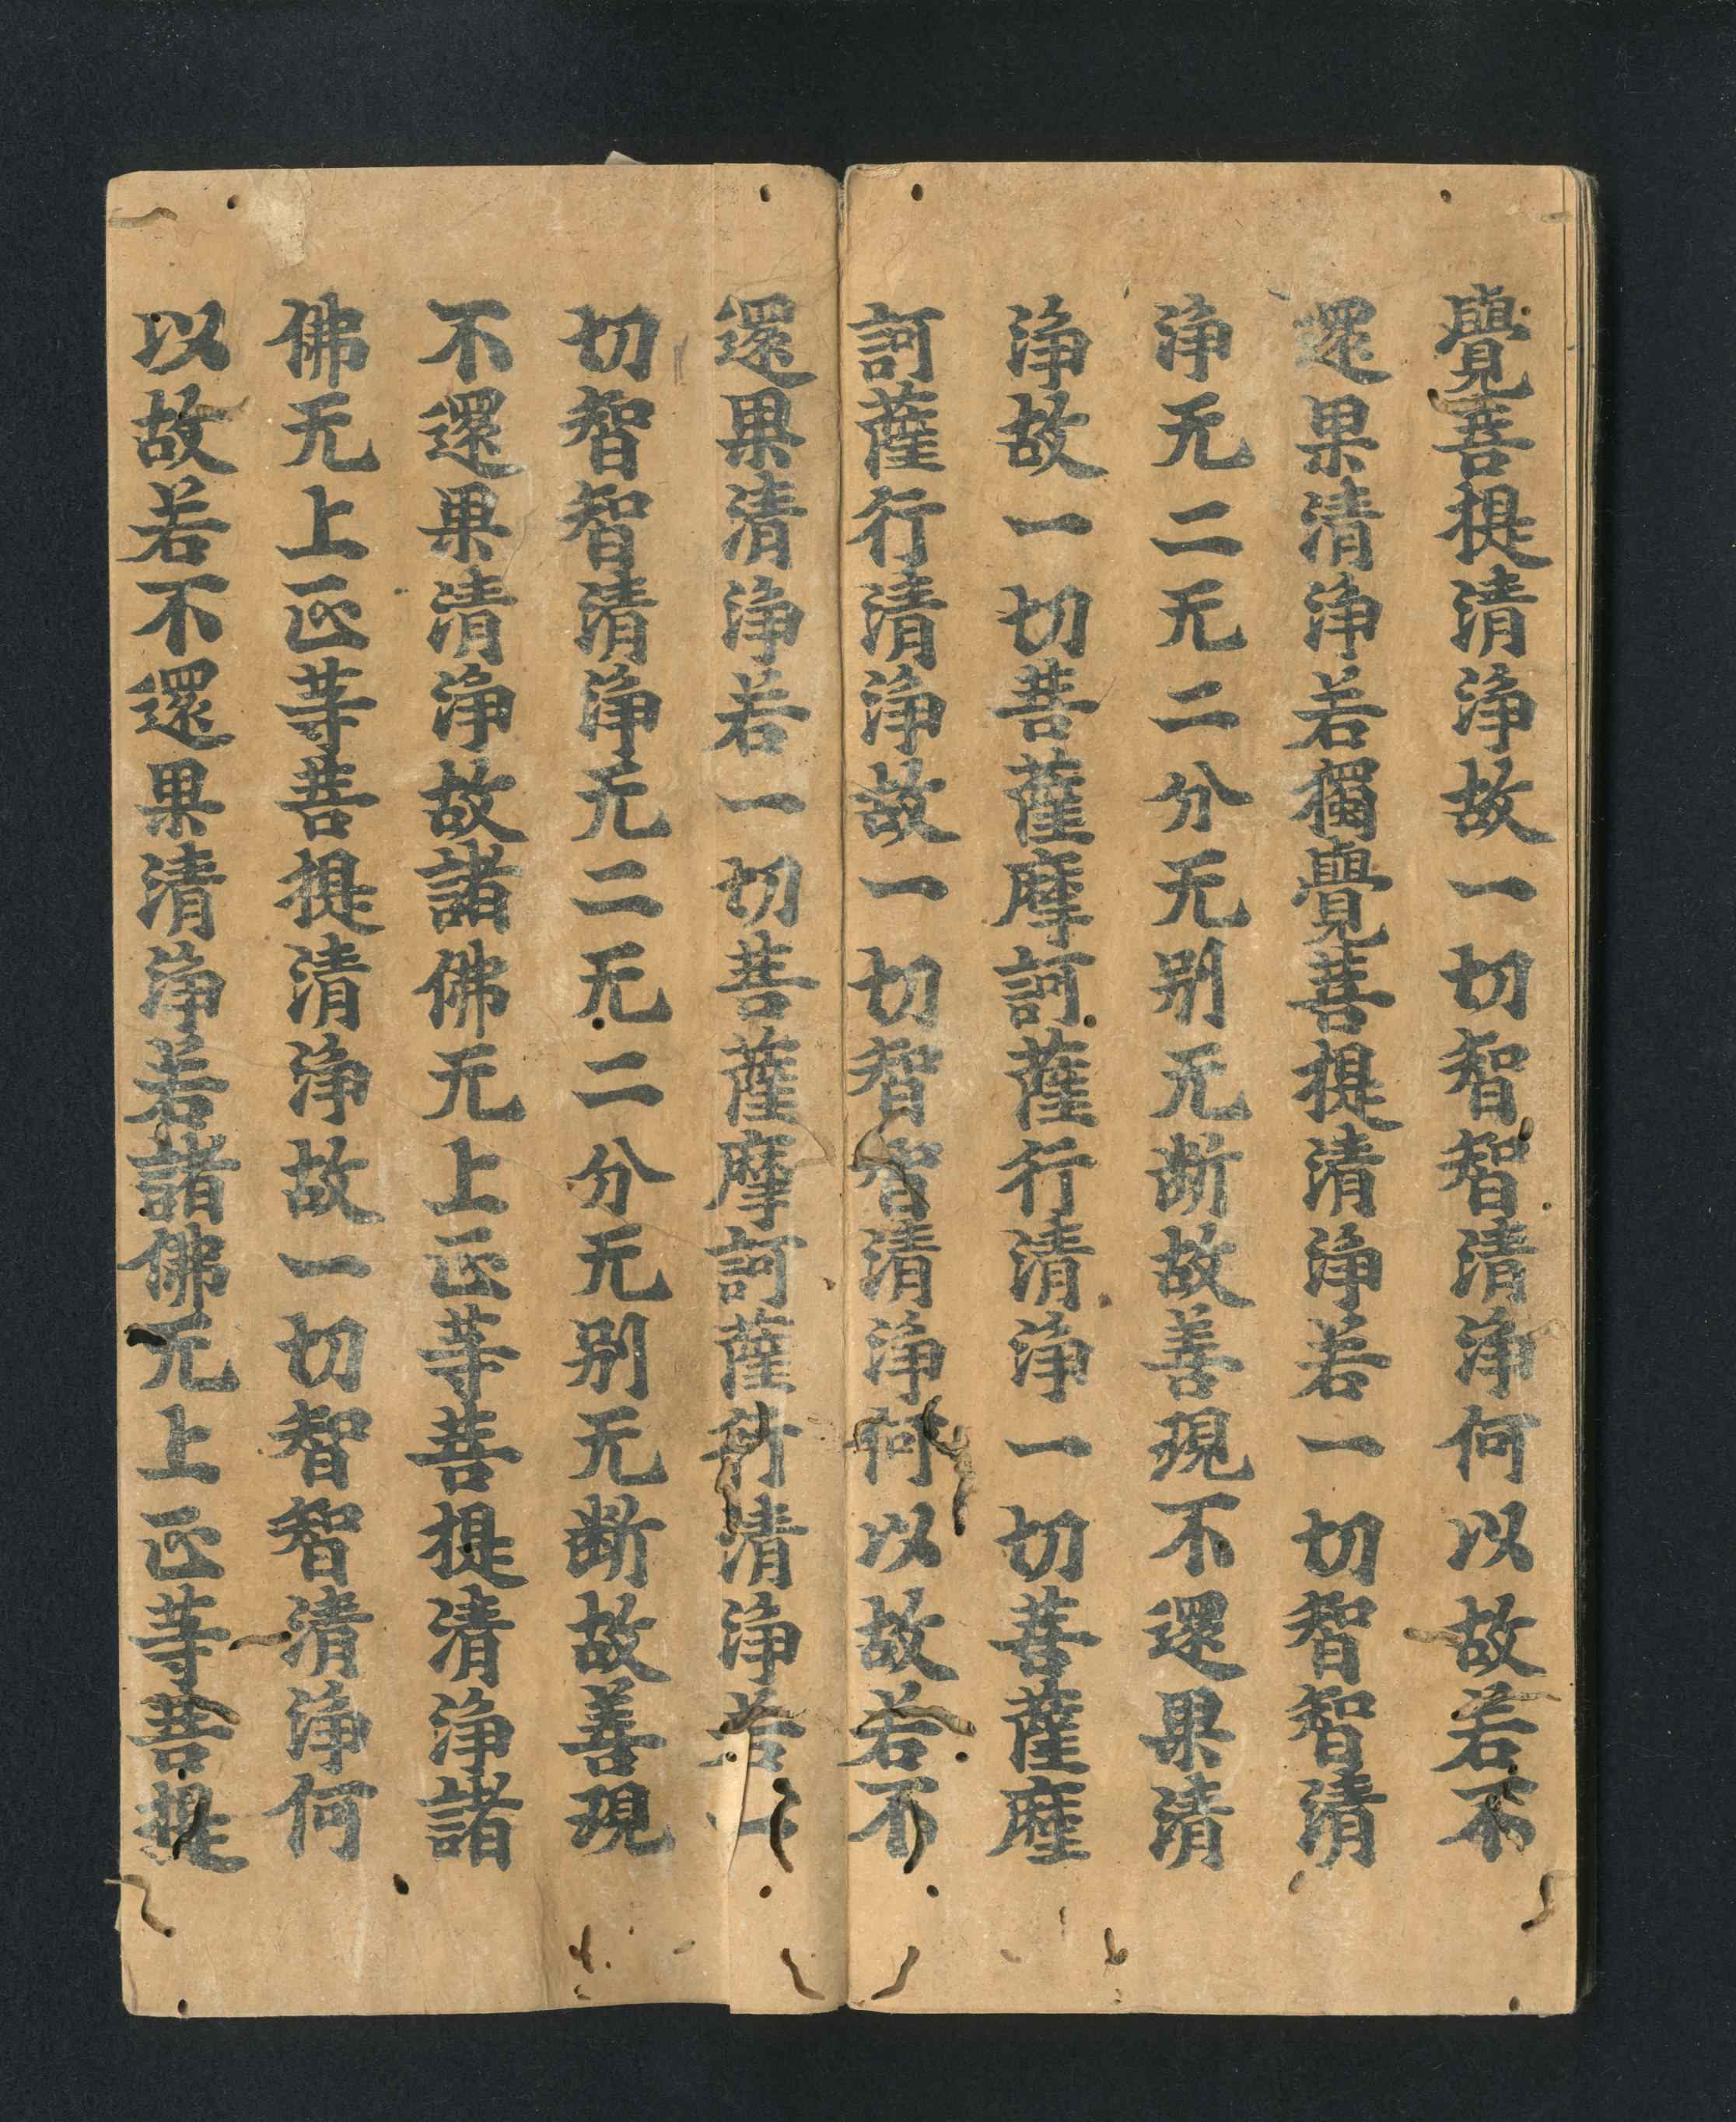 覺菩提清淨故一切智智清淨何以故若不
還果清淨若獨覺菩提清淨若一切智智清
淨无二无二分无别无断故善現不還果清
淨故一切菩薩摩訶薩行清淨一切菩薩摩
訶薩行清淨故一切智智清淨何以故若不
還果清淨若一切菩薩摩訶薩行清淨若一
切智智清淨无二无二分无别无断故善現
不還果清淨故諸佛无上正等菩提清淨諸
佛无上正等菩提清淨故一切智智清淨何
以故若不還果清淨若諸佛无上正等菩提